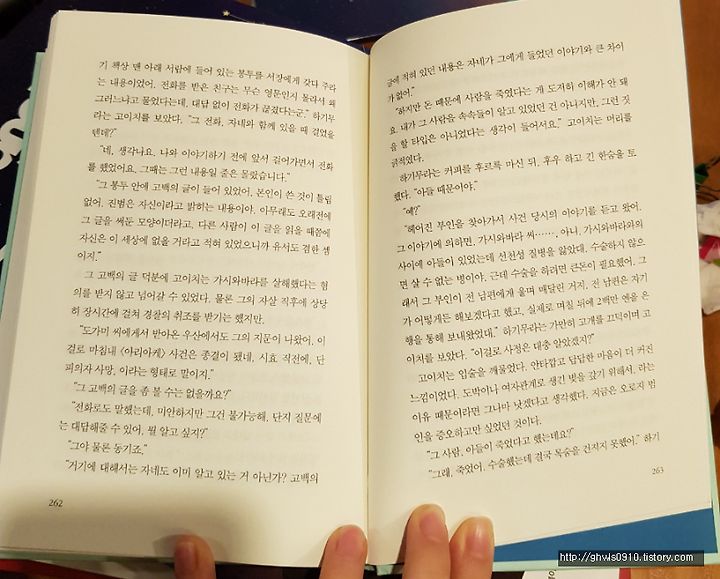 기 책상 맨 아래 서랍에 들어 있는 봉투를 서장에게 갖다 주라
는 내용이었어. 전화를 받은 친구는 무슨 영문인지 몰라서 왜
그러느냐고 물었다는데, 대답 없이 전화가 끊겼다는군." 하기무
라는 고이치를 보았다. "그 전화, 자네와 함께 있을 때 걸었을
텐데?"
"네, 생각나요. 나와 이야기하기 전에 앞서 걸어가면서 전화
를 했었어요. 그때는 그런 내용일 줄은 몰랐습니다."
"그 봉투 안에 고백의 글이 들어 있었어. 본인이 쓴 것이 틀림
없어. 진범은 자신이라고 밝히는 내용이야. 아무래도 오래전에
그 글을 써둔 모양이더라고. 다른 사람이 이 글을 읽을 때쯤에
자신은 이 세상에 없을 거라고 적혀 있었으니까 유서도 겸한 셈
이지."
그 고백의 글 덕분에 고이치는 가시와바라를 살해했다는 혐
의를 받지 않고 넘어갈 수 있었다. 물론 그의 자살 직후에 상당
히 장시간에 걸쳐 경찰의 취조를 받기는 했지만.
"도가미 씨에게서 받아온 우산에서도 그의 지문이 나왔어. 이
걸로 마침내 〈아리아케〉 사건은 종결이 됐네, 시효 직전에, 단
피의자 사망, 이라는 형태로 말이지."
"그 고백의 글을 좀 볼 수는 없을까요?"
"전화로도 말했는데, 미안하지만 그건 불가능해. 단지 질문에
는 대답해줄 수 있어. 뭘 알고 싶지?"
"그야 물론 동기죠."
"거기에 대해서는 자네도 이미 알고 있는 거 아닌가? 고백의
262
글에 적혀 있던 내용은 자네가 그에게 들었던 이야기와 큰 차이
가 없어."
"하지만 돈 때문에 사람을 죽였다는 게 도저히 이해가 안 돼
요. 내가 그 사람을 속속들이 알고 있었던 건 아니지만, 그런 짓
을 할 타입은 아니었다는 생각이 들어서요." 고이치는 머리를
긁적였다.
하기무라는 커피를 후르륵 마신 뒤, 후우 하고 긴 한숨을 토
했다. "아들 때문이야."
"예?"
"헤어진 부인을 찾아가서 사건 당시의 이야기를 듣고 왔어.
그 이야기에 의하면, 가시와바라 씨……, 아니, 가시와바라와의
사이에 아들이 있었는데 선천성 질병을 앓았대. 수술하지 않으
면 살 수 없는 병이야. 근데 수술을 하려면 큰돈이 필요했어. 그
래서 그 부인이 전 남편에게 울며 매달린 거지. 전 남편은 자기
가 어떻게든 해보겠다고 했고, 실제로 며칠 뒤에 2백만 엔을 은
행을 통해 보내왔었대." 하기무라는 가만히 고개를 끄덕이며 고
이치를 보았다. "이걸로 사정은 대충 알았겠지?"
고이치는 입술을 깨물었다. 안타깝고 답답한 마음이 더 커진
느낌이었다. 도박이나 여자관계로 생긴 빚을 갚기 위해서, 라는
이유 때문이라면 그나마 낫겠다고 생각했다. 지금은 오로지 범
인을 증오하고만 싶었던 것이다.
"그 사람, 아들이 죽었다고 했는데요?"
"그래, 죽었어. 수술했는데 결국 목숨을 건지지 못했어." 하기
263
http://ghwls0910.tistory.com